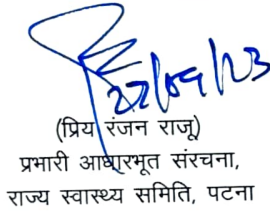 22/09/23
(प्रिय रंजन राजू)
प्रभारी आधारभूत संरचना,
राज्य स्वास्थ्य समिति, पटना